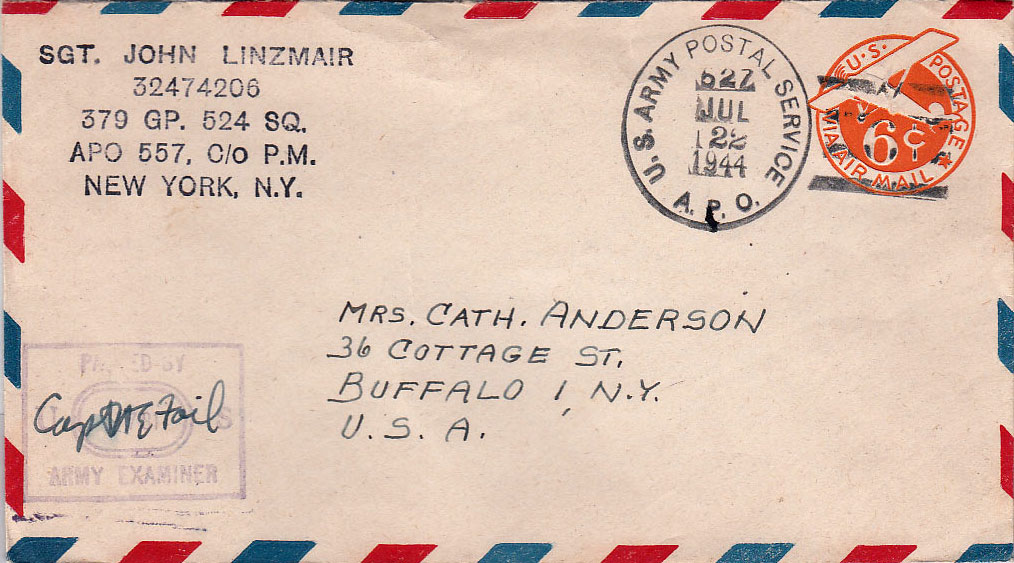 SGT. JOHN LINZMAIR
32474206
379 GP. 524 SQ.
APO 557, C/o P.M.
NEW YORK, N.Y.
U.S. ARMY POSTAL SERVICE
JUL
22
1944
A.P.O.
U.S. POSTAGE
6¢
VIA AIR MAIL
MRS. CATH. ANDERSON
36 COTTAGE ST.
BUFFALO 1, N.Y.
U.S.A.
PASSED BY
S
ARMY EXAMINER
Capt